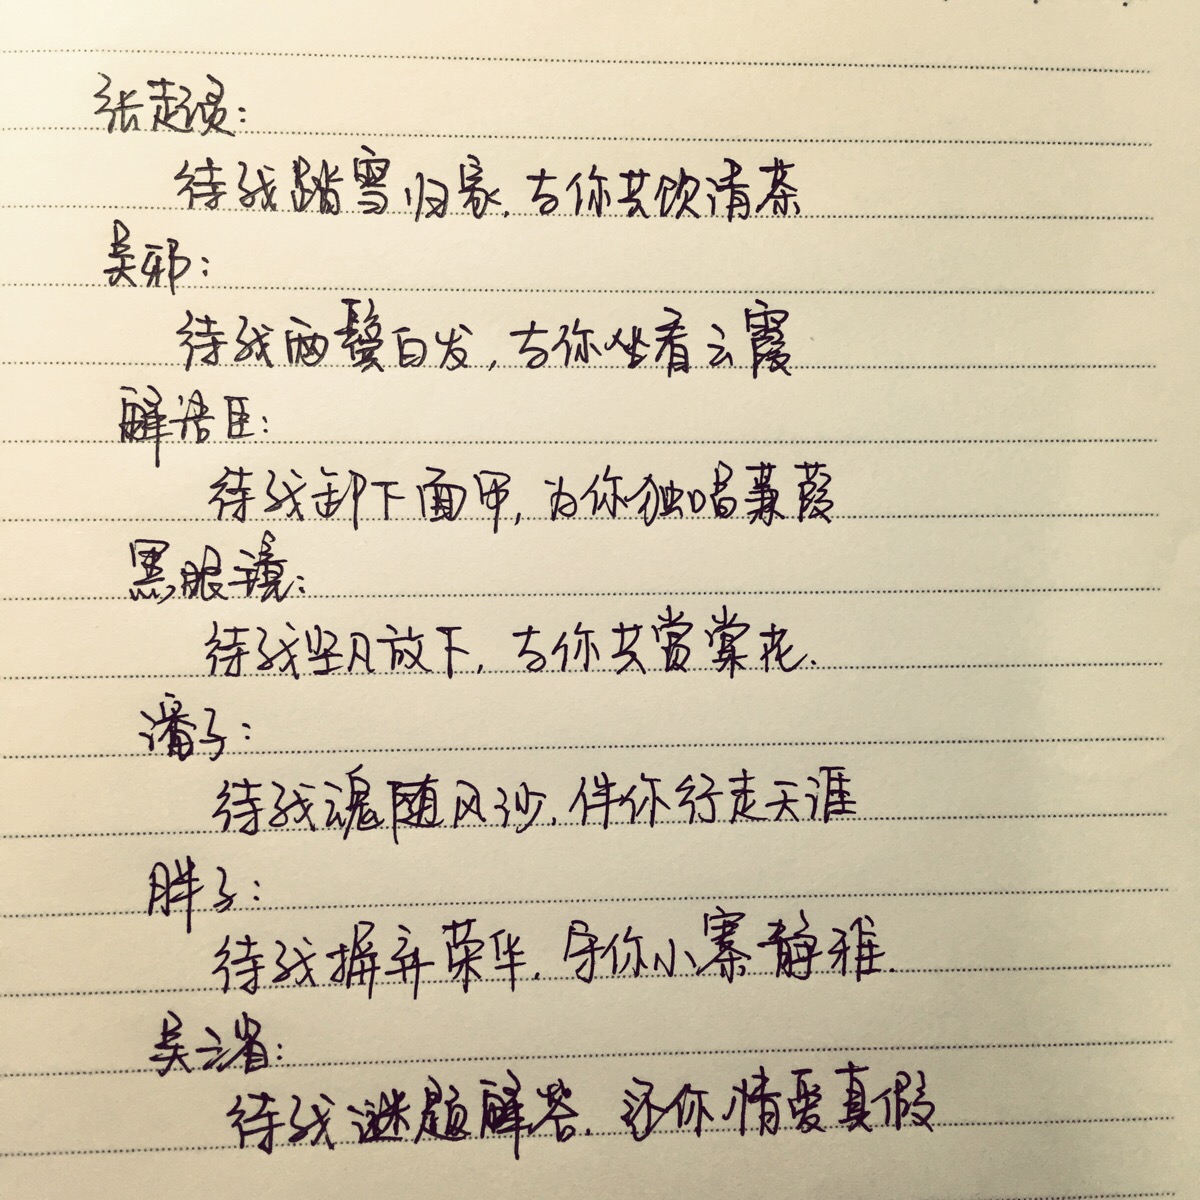 张起灵：
待我踏雪归家，与你共饮清茶
吴邪：
待我两鬓白发，与你坐看云霞
解语臣：
待我卸下面甲，为你独唱蒹葭
黑眼镜：
待我坚凡放下，与你共赏棠花.
潘子：
待我魂随风沙，伴你行走天涯
胖子：
待我摒弃荣华，守你小寨静雅.
吴三省：
待我谜题解答，还你情爱真假